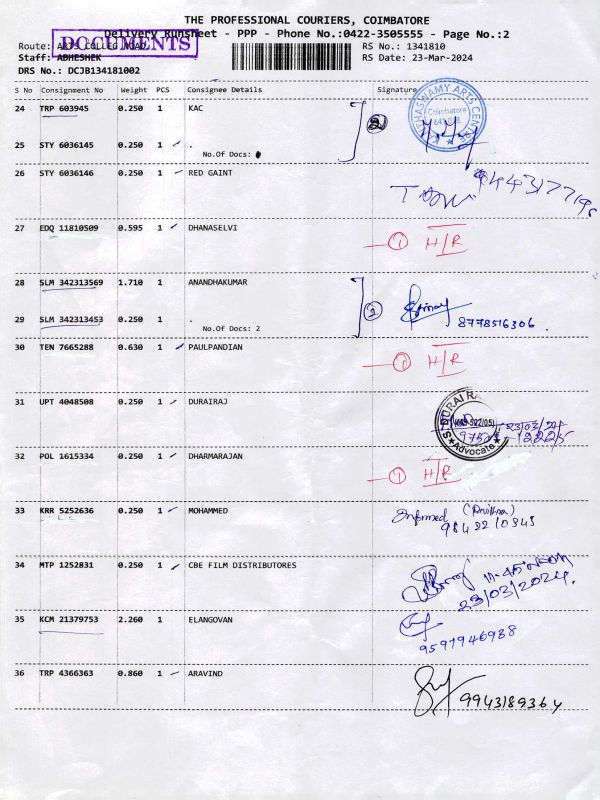 THE PROFESSIONAL COURIERS, COIMBATORE
Delivery Runsheet - PPP - Phone No.:0422-3505555 - Page No.:2
DOCUMENTS
Route: ARTS COLLEG ROAD.
RS No.: 1341810
Staff: ABHESHEK
RS Date: 23-Mar-2024
DRS No.: DCJB134181002
S No Consignment No Weight PCS Consignee Details Signature
24 TRP 603945 0.250 1 KAC
2
25 STY 6036145 0.250 1 .
No.Of Docs:
Coimbatore
26 STY 6036146 0.250 1 RED GAINT
27 EDQ 11810509 0.595 1 DHANASELVI
1 H/R
28 SLM 342313569 1.710 1 ANANDHAKUMAR
29 SLM 342313453 0.250 1 .
No.Of Docs: 2
2
8778516306.
30 TEN 7665288 0.630 1 PAULPANDIAN
1 H/R
31 UPT 4048508 0.250 1 DURAIRAJ
Advocate
23/03/24
32 POL 1615334 0.250 1 DHARMARAJAN
1 H/R
33 KRR 5252636 0.250 1 MOHAMMED
Informed
34 MTP 1252831 0.250 1 CBE FILM DISTRIBUTORES
23/03/2024.
35 KCM 21379753 2.260 1 ELANGOVAN
9597946988
36 TRP 4366363 0.860 1 ARAVIND
9943189364